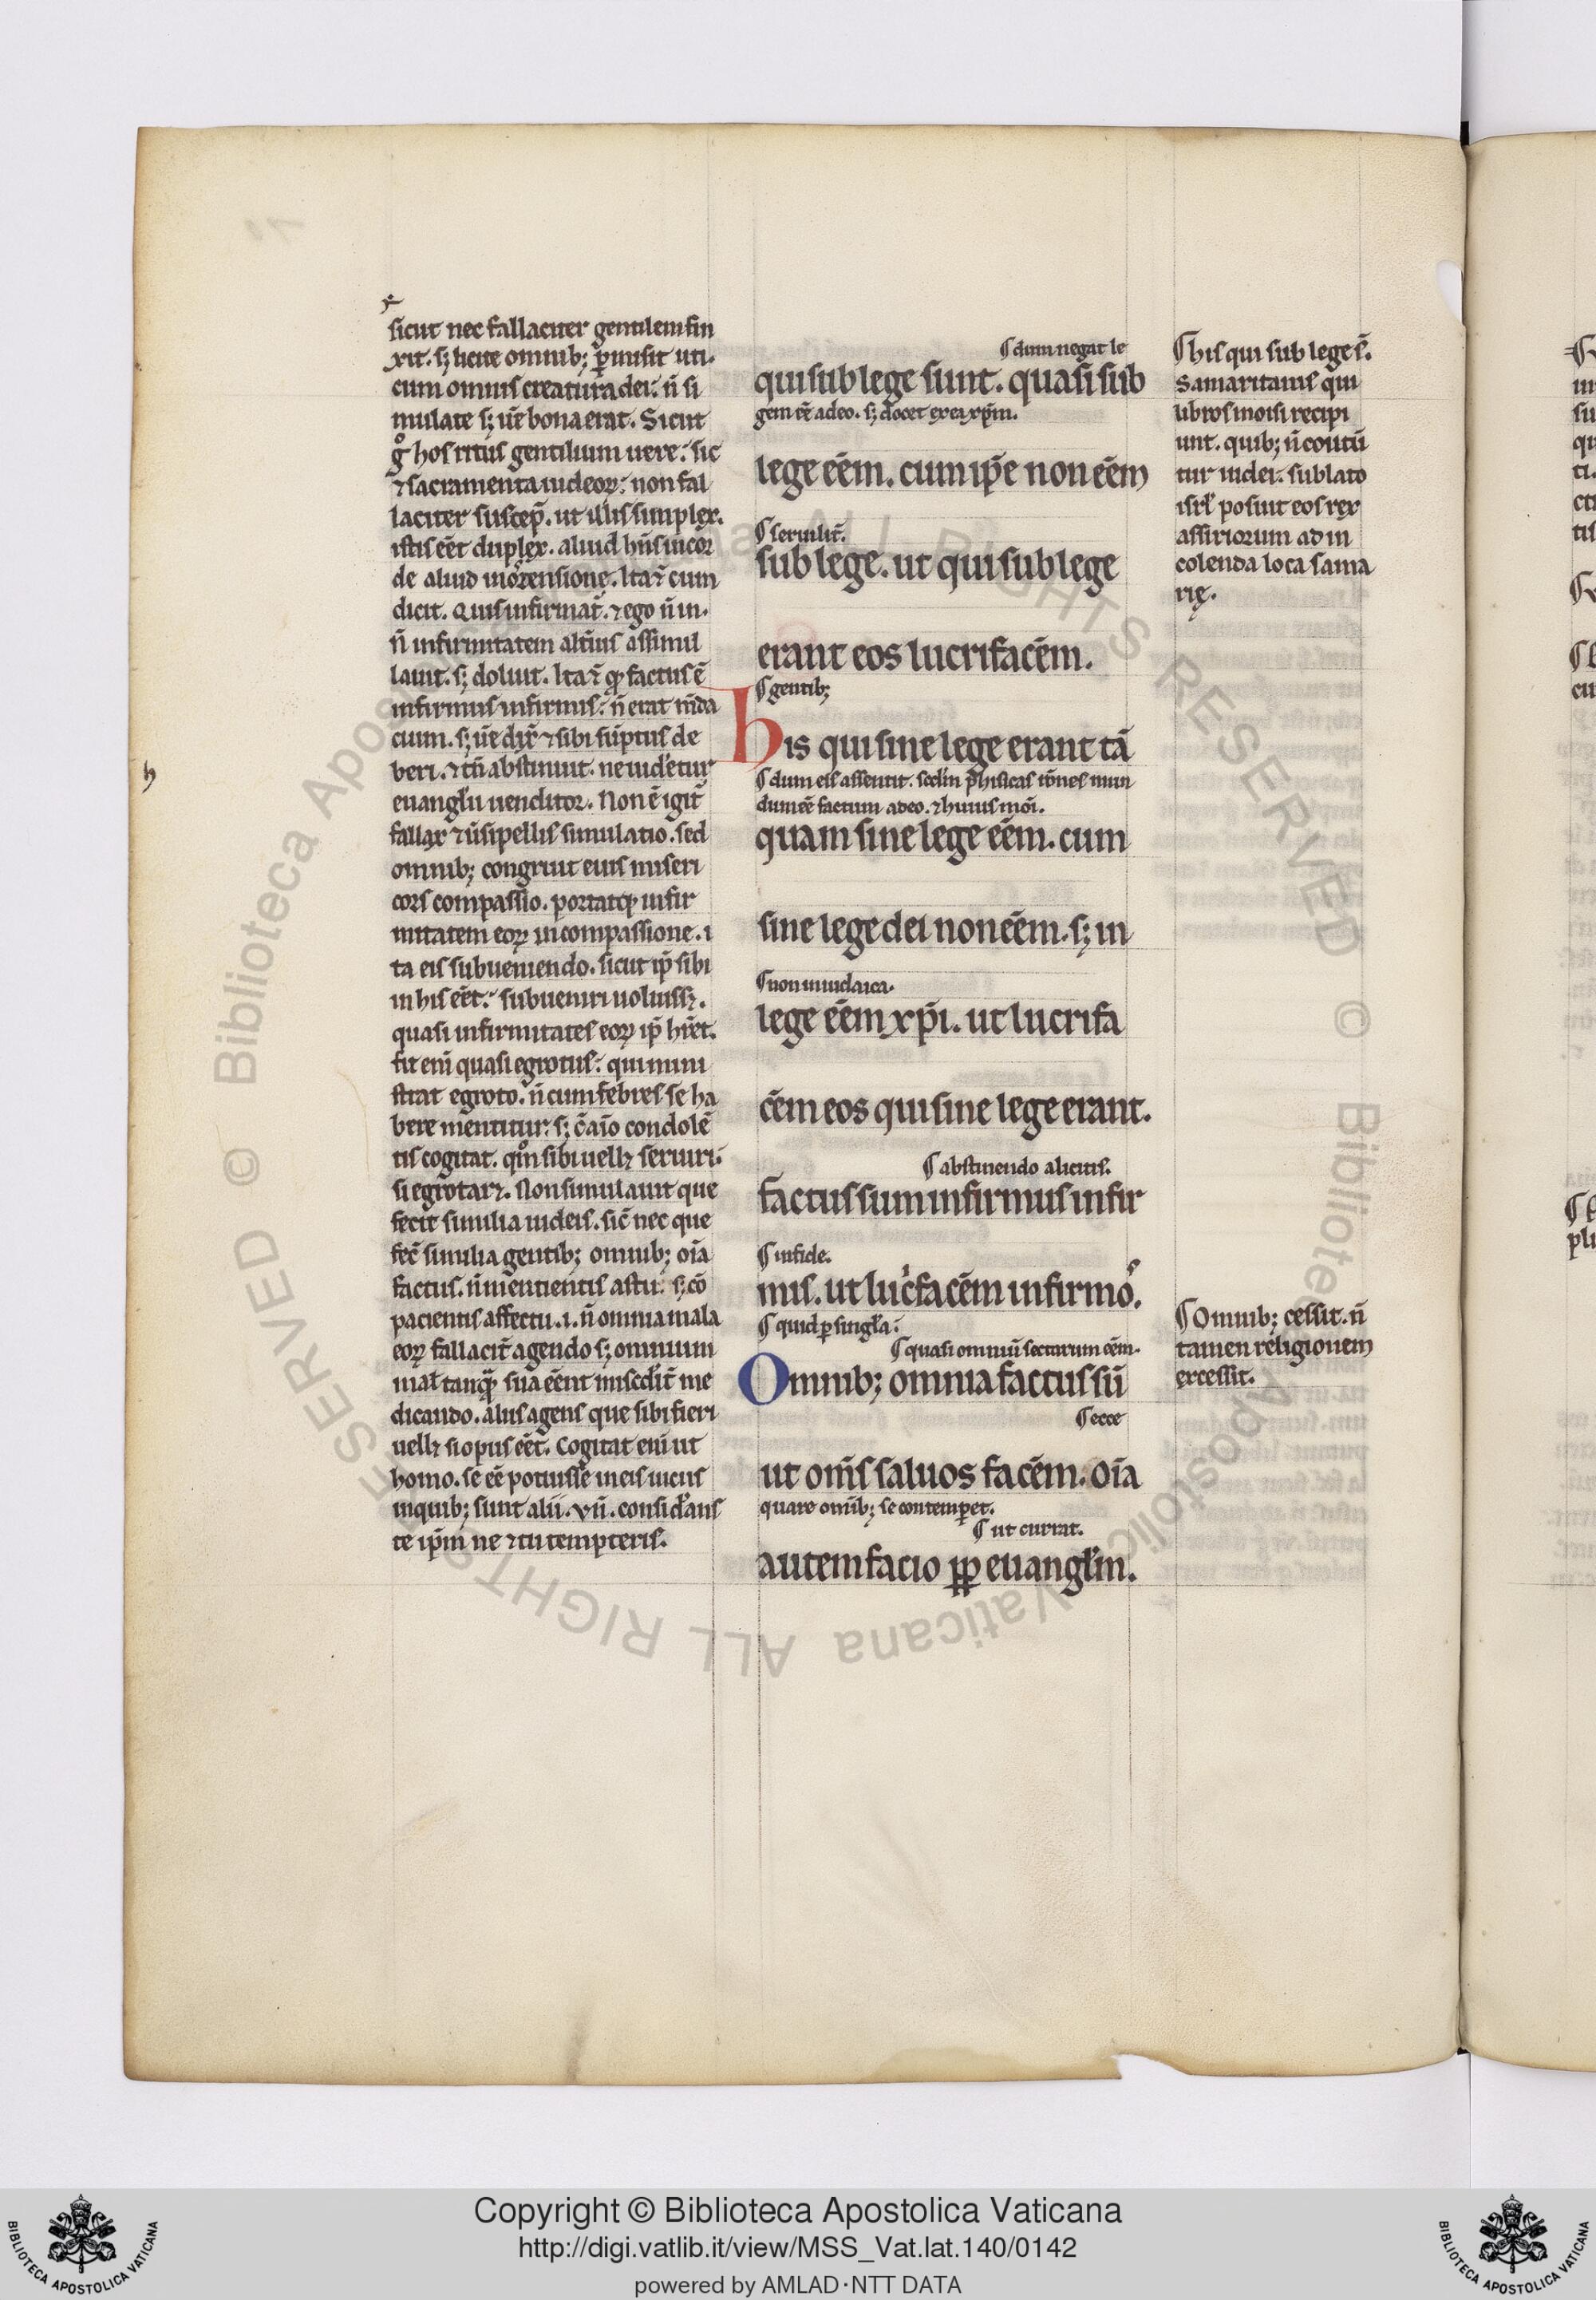 sicut nec fallaciter gentilem fin
xit. sꝫ licite omnibꝫ ꝑmisit uti.
cum omnis creatura dei. n̄ si
mulate sꝫ ut̄ bona erat. Sicut
gͦ hos ritus gentilium uere. sic
⁊ sacramenta iudeoꝝ. non fal
laciter suscep̄. ut illis simplex.
istis eēt duplex. aliud hn̄s in cor
de aliud in or̄ensione. Ita ⁊ cum
dicit. Quis infirmat̄. ⁊ ego n̄ in.
n̄ infirmitatem alt̄ius assimul
lauit. sꝫ doluit. Ita ⁊ qͥ factus ē
infirmus infirmis. n̄ erat m̄da
cium. sꝫ ue dix̄ ⁊ sibi sūptus de
beri. ⁊ tn̄ abstinuit. ne uidetur
euanglii uenditor. Non ē igit̄
fallax ⁊ ūsipellis simulatio. sed
omnibꝫ congruit eius miseri
cors compassio. portatqꝫ infir
mitatem eoꝝ in compassione. i
ta eis subueniendo. sicut ip̄ sibi
in his eēt. subueniri uoluissꝫ.
quasi infirmitates eoꝝ ip̄ hr̄et.
fit eni quasi egrotus. qui mini
strat egroto. n̄ cum febres se ha
bere mentitur. sꝫ c̄ aīo condolē
tis cogitat. qͦm̄ sibi uellꝫ seruiri.
si egrotarꝫ. Non simulauit que
fecit similia iudeis. sic̄ nec que
fec̄ similia gentibꝫ omnibꝫ oīa
factus. n̄ mentientis astu. sꝫ cō
pacientis affectu. i. n̄ omnia mala
eoꝝ fallacit̄ agendo sꝫ omnium
mal̄ tanqͣ sua eēnt misc̄dit̄ me
dicando. aliis agens que sibi fieri
uellꝫ si opus eēt. Cogitat eni ut
homo. se eē potuisse in eis uiciis
in quibꝫ sunt alii. vn̄. considerans
te ip̄m ne ⁊ tu tempteris.
¶ dum negat le
qui sub lege sunt. quasi sub
gem eē a deo. sꝫ docet ex ea xp̄m.
lege eēm. cum ip̄e non eēm
¶ seruilit̄.
sub lege. ut qui sub lege
erant eos lucrifacēm.
¶ gentibꝫ
his qui sine lege erant tā
¶ dum eis assentit. scd̄m phisicas rōnes mun
dum eē factum a deo. ⁊ huius moi.
quam sine lege eēm. cum
sine lege dei non eēm. sꝫ in
¶ non iudaica.
lege eēm xp̄i. ut lucrifa
cēm eos qui sine lege erant.
¶ abstinendo a licitis.
factus sum infirmus infir
¶ in fide.
mis. ut lucͥfacēm infirmoˢ.
¶ quid ꝑ singla.
¶ quasi omniū sectarum eēm.
Omnibꝫ omnia factus sū
¶ ecce
ut om̄s saluos facēm. oīa
quare omībꝫ se contempet.
¶ ut currat.
autem facio ꝓp euanglm.
¶ his qui sub lege s̄.
Samaritanis qui
libros moisi recipi
unt. quibꝫ n̄ coutū
tur iudei. sublato
isrl̄ posuit eos rex
assiriorum ad in
colenda loca sama
rię.
¶ Omnibꝫ cessit. n̄
tamen religionem
excessit.
Copyright © Biblioteca Apostolica Vaticana
http://digi.vatlib.it/view/MSS_Vat.lat.140/0142
powered by AMLAD·NTT DATA
BIBLIOTECA APOSTOLICA VATICANA
BIBLIOTECA APOSTOLICA VATICANA